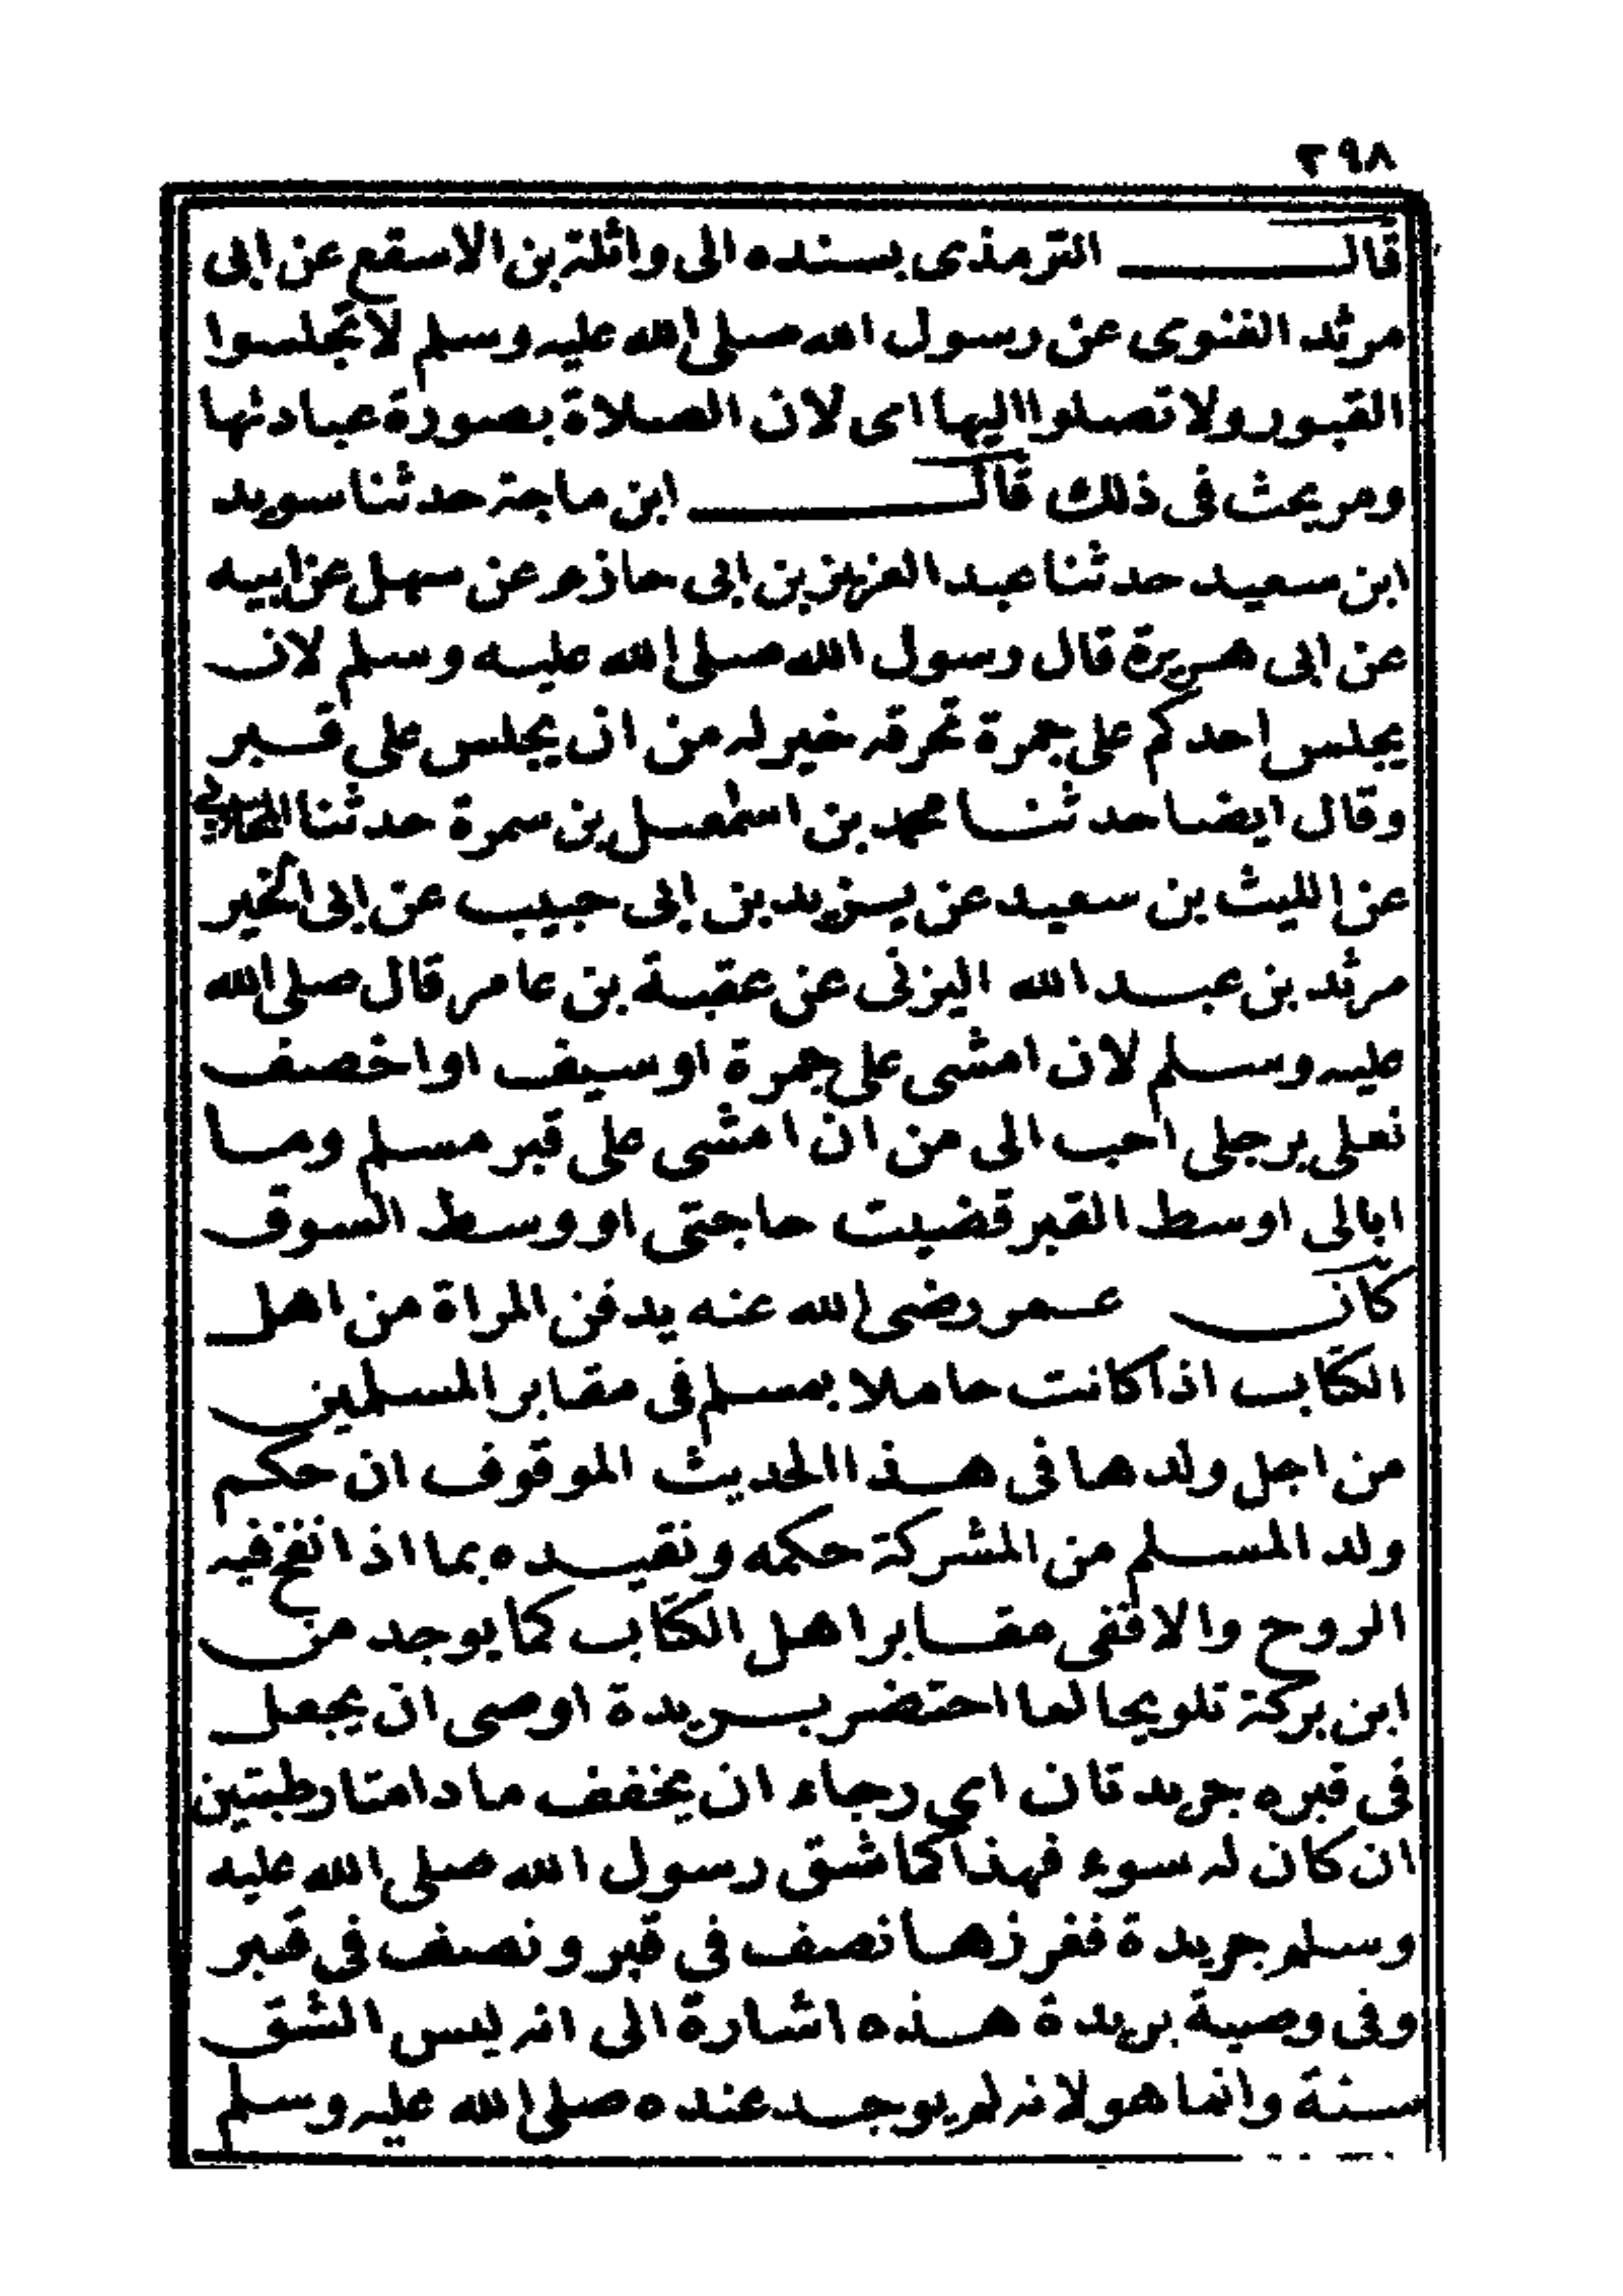 ٢٩٨
قال الترمذى بسنده الى واثلة بن الاسقع عن ابى
مرثد الغنوى عن رسول الله صلى الله عليه وسلم لا تجلسوا
القبور ولا تصلوا اليها اى لان الصلاة بصورة عبادتها
ومر بحث فى ذلك قال ابن ماجة حدثنا سويد
ابن سعيد حدثنا عبد العزيز بن ابى حازم عن سهل عن ابيه
عن ابى هريرة قال رسول الله صلى الله عليه وسلم لان
يجلس احدكم على جمرة تحرقه خير له من ان يجلس على قبر
وقال ايضا حدثنا محمد بن اسمعيل بن سمرة حدثنا المحاربي
عن الليث بن سعيد عن يزيد بن ابى حبيب عن ابى الخير
مرثد بن عبد الله اليزنى عن عقبة بن عامر قال صلى الله
عليه وسلم لان امشى على جمرة او سيف او اخصف
نعلى برجلى احب الى من ان امشى على قبر مسلم وما
ابالى اوسط القبر قضيت حاجتى او وسط السوق
كان عمر رضى الله عنه يدفن المراة من اهل
الكتاب اذا كانت حاملا بمسلم فى مقابر المسلمين
من اجل ولدها فى هذا الحديث الموقوف ان حكم
ولد المسلم من المشركة حكمه ونقيده بما اذا نفخ فيه
الروح والا ففى مقابر اهل الكتاب كما يوجد من
ابن بركة تلويحا لما احتضر بريدة اوصى ان يجعل
فى قبره جريدتان اي رجاء ان يخفف ما دامتا رطبتين
ان كان له سوء فهذا كما شق رسول الله صلى الله عليه
وسلم جريدة ففرزها نصف فى قبر ونصف فى قبر
وفى وصية بريدة هذه اشارة الى انه ليس الشق
سنة وانما هو لانه لم يوجد عنده صلى الله عليه وسلم